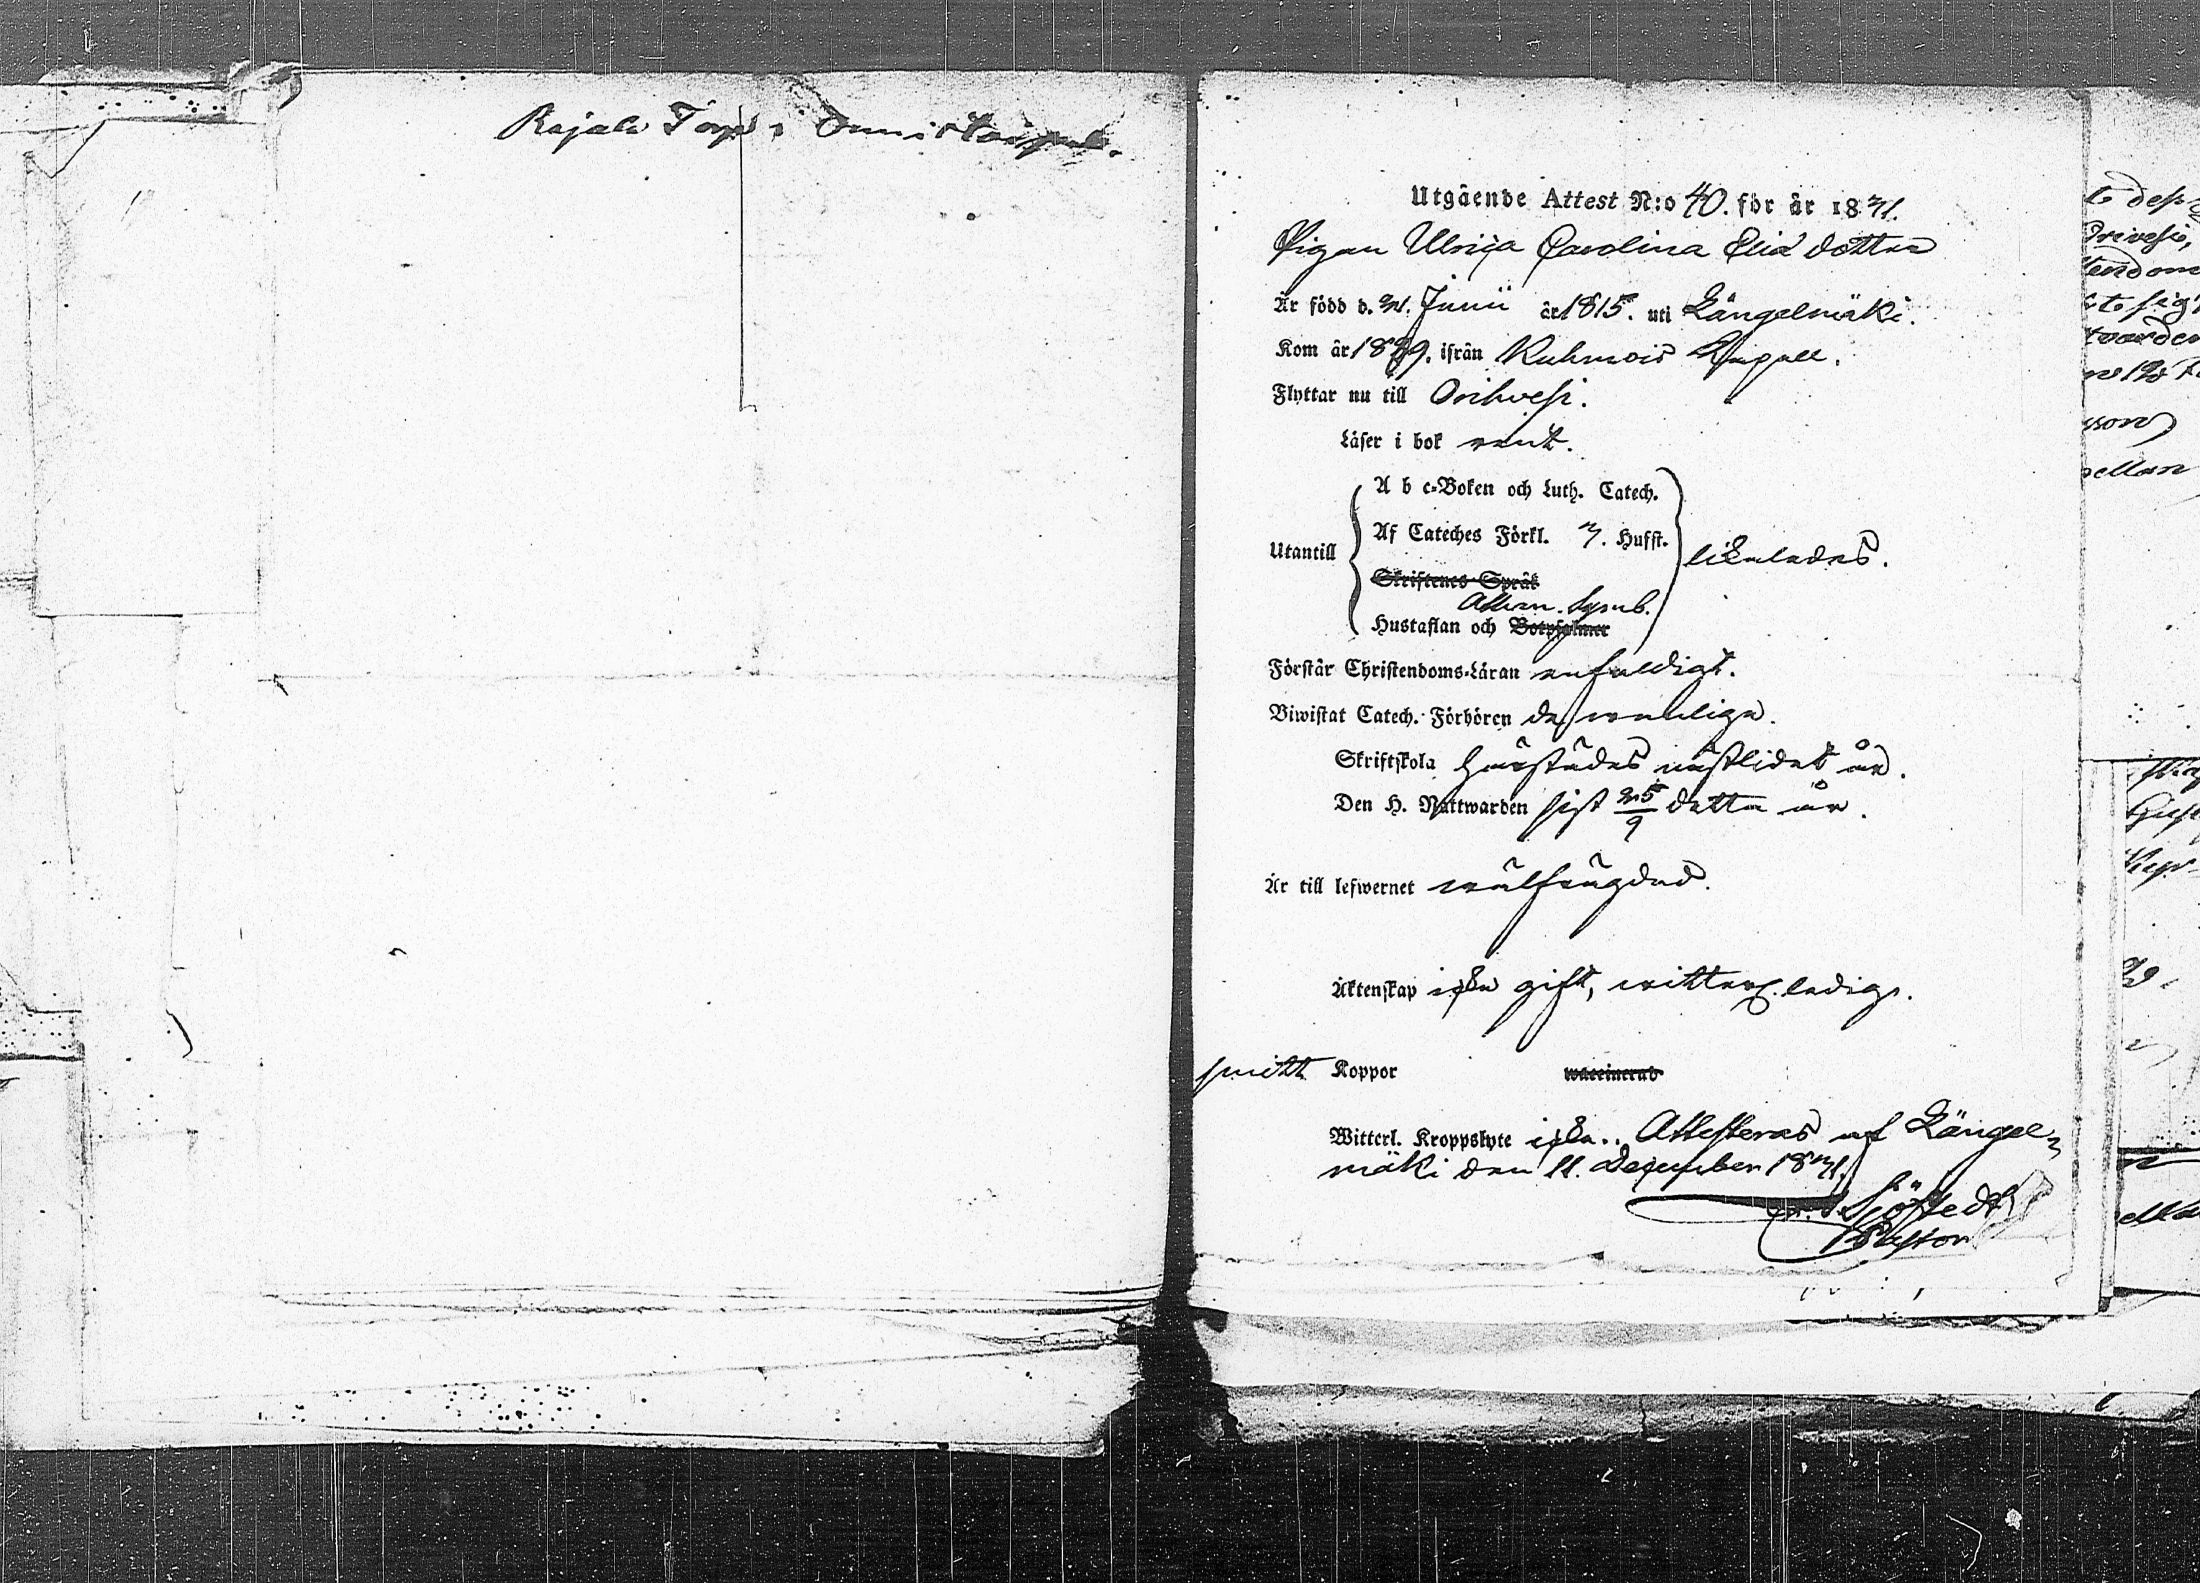 Rajala Torp i Onnistaipale.
Utgående Attest N:o 40. för år 1871.
Pigan Ulrica Carolina Elia dotter
Är född d. 21. Junii år 1815. uti Längelmäki.
Kom år 1839. ifrån Kuhmois Kapell.
Flyttar nu till Orihvesi.
Läser i bok rent.
A b c-Boken och Luth. Catech.
Af Cateches Förkl. 7. Hufst.
Utantill likaledes.
Skriftenes Språk
Athan. Symb.
Hustaflan och Botpsalmer
Förstår Christendoms-Läran enfaldigt.
Biwistat Catech. Förhören de wanliga.
Skriftskola härstädes nästlidet år.
Den H. Nattwarden sist 25/9 detta år.
Är till lefwernet wälfrägdad.
Äktenskap icke gift, witterl. ledig.
haft Koppor waccinerad
Witterl. Kroppslyte icke. Attesteras af Längel-
mäki den 11. December 1871.
Sjöstedt
Pastor